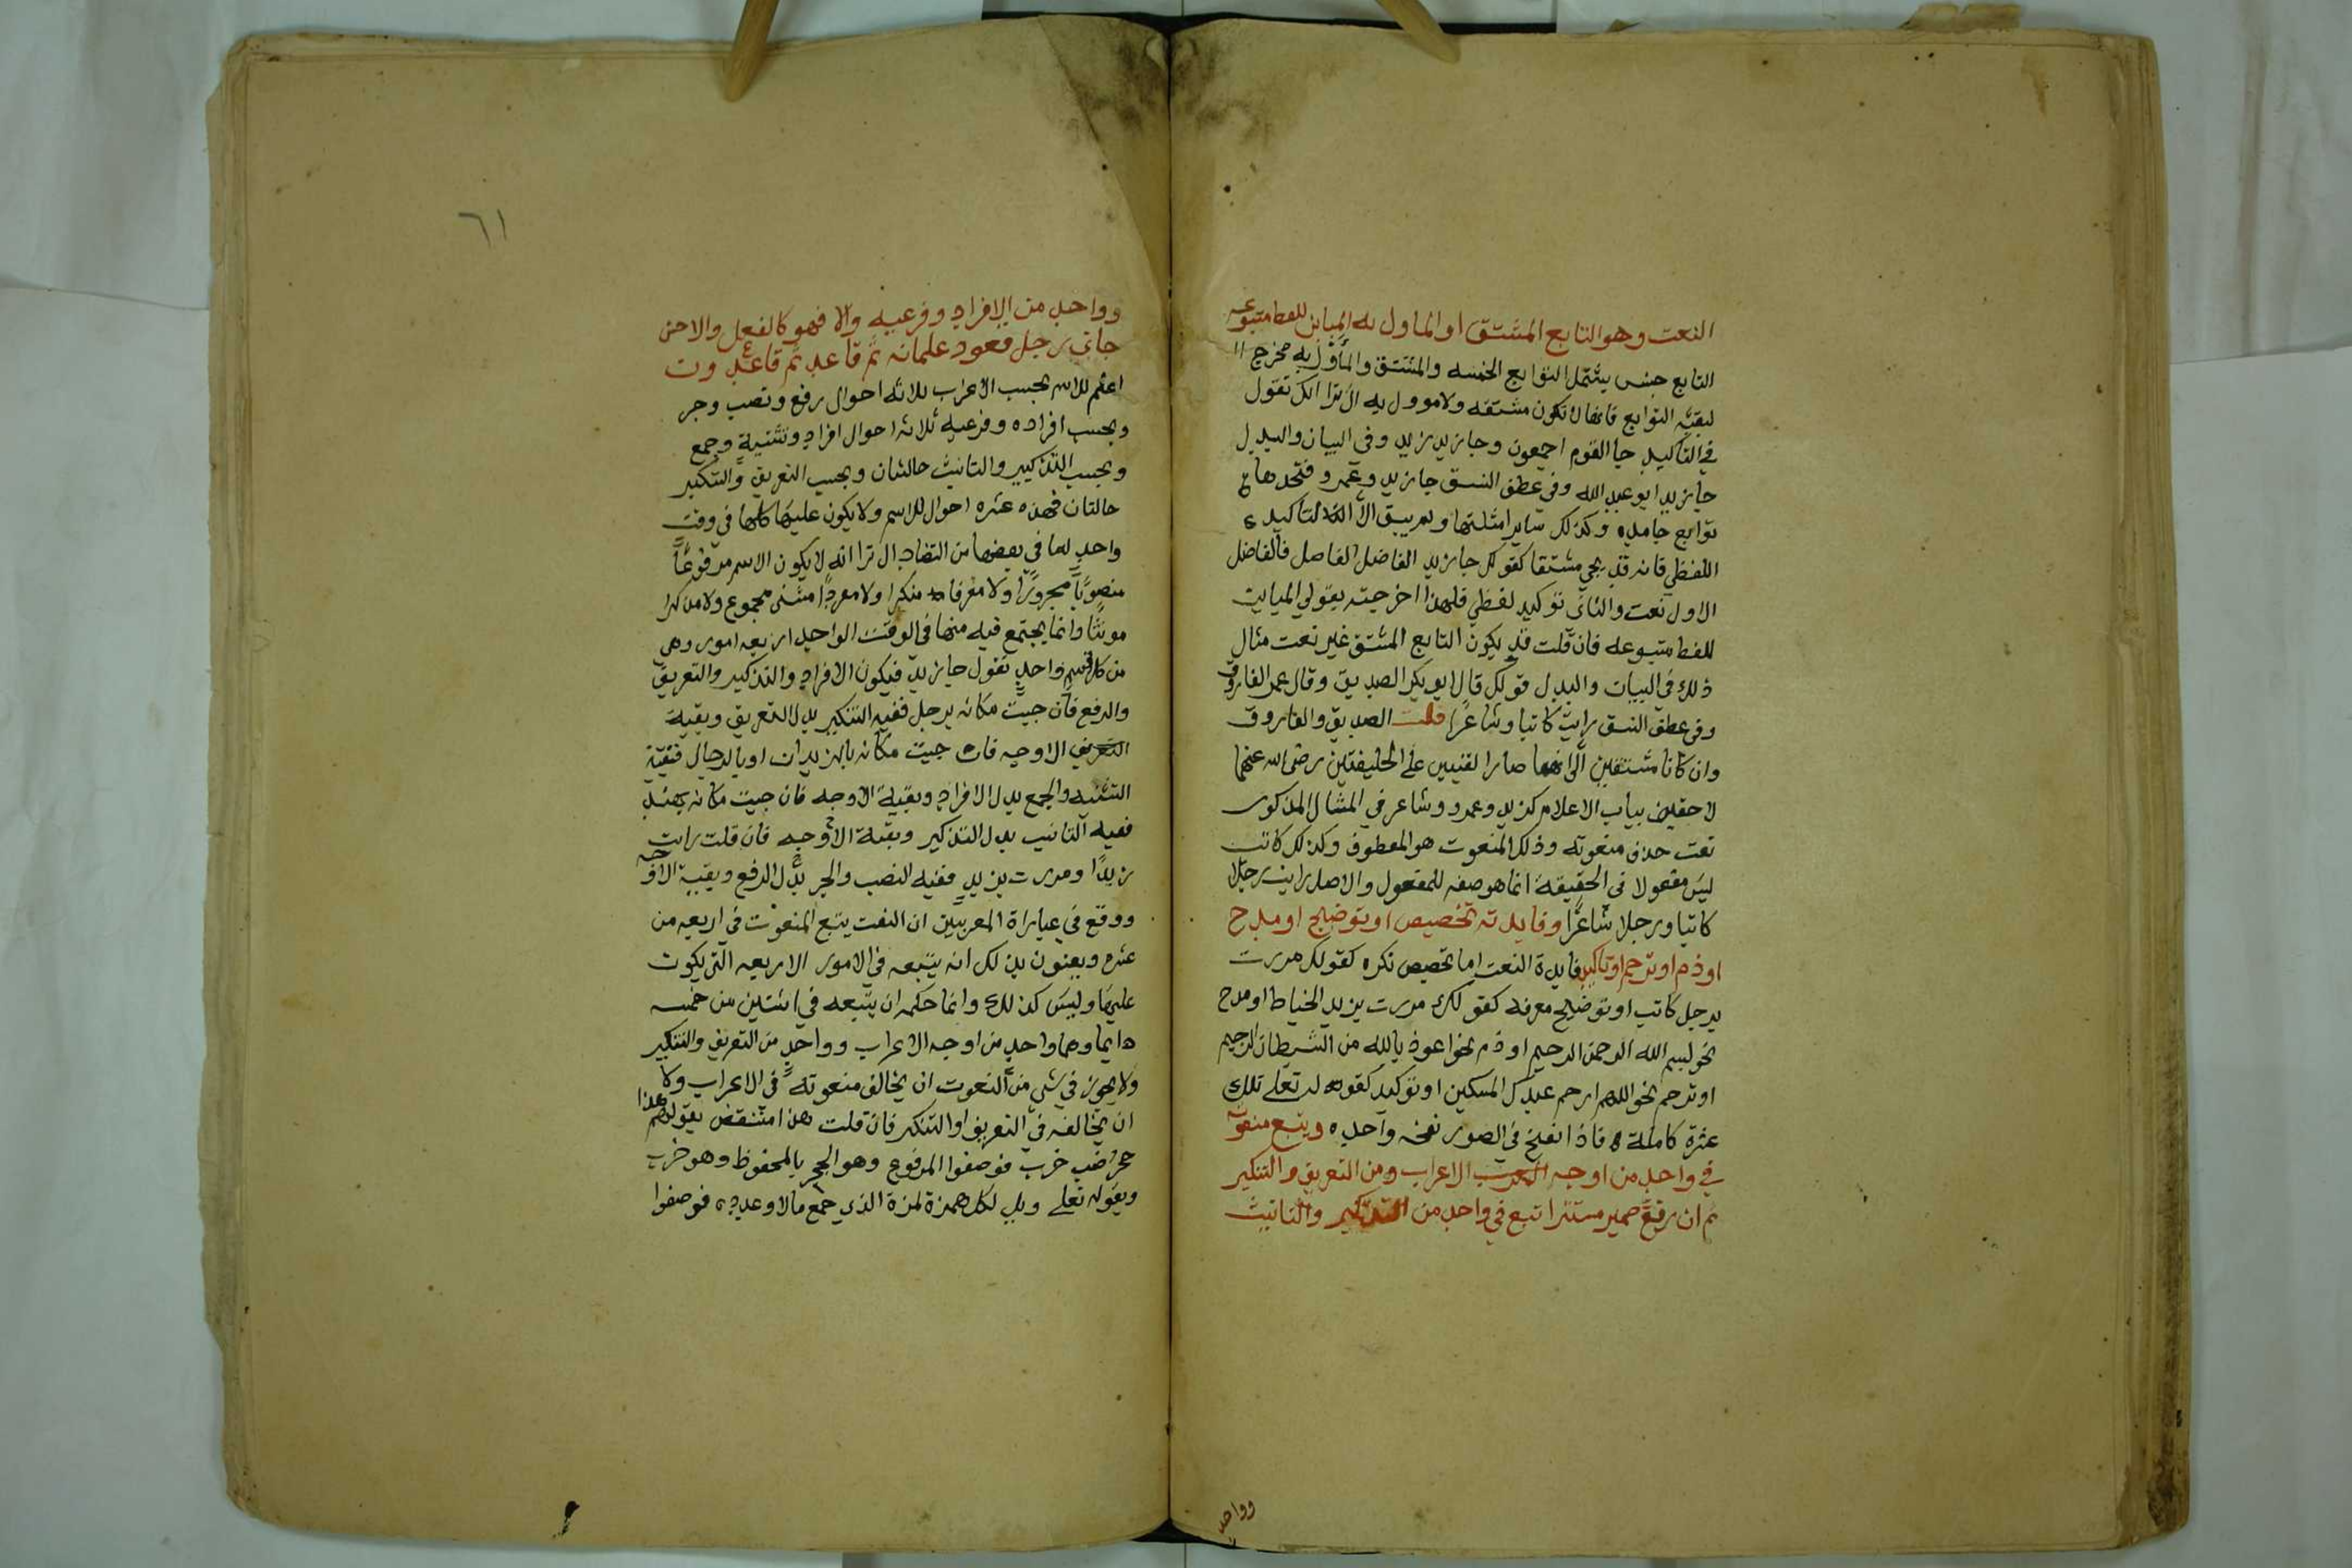 النعت وهو التابع المشتق او الماول به المباين للفظ متبوعه
التابع جنس يشمل التوابع الخمسه والمشتق والمأوّل به مخرج
لبقيّه التوابع فانها لا تكون مشتقه ولا موول به الا ترا انك تقول
في التاكيد جا القوم اجمعون وجا زيد زيد وفى البيان والبدل
جا زيد ابو عبد الله وفي عطف النسق جا زيد وعمرو فتجدها
توابع جامده وكذلك ساير امثلتها ولم يبق الا التاكيد
اللفظي فانه قد يجي مشتقا كقولك جا زيد الفاضل الفاضل فالفاضل
الاول نعت والثانى توكيد لفظي فلهذا اخرجته بقولي المباين
للفظ متبوعه فان قلت قد يكون التابع المشتق غير نعت مثال
ذلك في البيان والبدل قولك قال ابو بكر الصديق وقال عمر الفاروق
وفى عطف النسق رايت كاتبا وشاعرا قلت الصديق والفاروق
وان كانا مشتقين الا انهما صارا لقبين على الخليفتين رضى الله عنهما
لاحقين بباب الاعلام كزيد وعمرو وشاعر في المثال المذكور
نعت حذف منعوته وذلك المنعوت هو المعطوف وكذلك كاتب
ليس مفعولا فى الحقيقة انما هو صفه للمفعول والاصل رايت رجلا
كاتبا ورجلا شاعرًا وفايدته تخصيص او توضيح او مدح
او ذم او ترحم او تاكيد فايدة النعت اما تخصيص نكره كقولك مررت
برجل كاتب او توضيح معرفه كقولك مررت بزيد الخياط او مدح
نحو بسم الله الرحمن الرحيم او ذم نحو اعوذ بالله من الشيطان الرجيم
او ترحم نحو اللهم ارحم عبدك المسكين او توكيد كقوله تعلى تلك
عشرة كاملة فاذا نفخ في الصور نفخه واحده ويتبع منعوته
في واحد من اوجه الاعراب ومن التعريف والتنكير
ثم ان رفع ضمير مستترا تبع في واحد من التذكير والتانيث
وواحد
٦١
وواحد من الافراد وفرعيه والا فهو كالفعل والاحسن
جاني رجل قعود غلمانه ثم قاعد ثم قاعدون
اعلم للاسم بحسب الاعراب ثلاثه احوال رفع ونصب وجر
وبحسب افراده وفرعيه ثلاثه احوال افراد وتثنية وجمع
وبحسب التذكير والتانيث حالتان وبحسب التعريف والتنكير
حالتان فهذه عشره احوال للاسم ولا يكون عليها كلها في وقت
واحد لما في بعضها من التضاد ال ترا انه لا يكون الاسم مرفوعًا
منصوبًا مجرورًا ولا معرفا منكرا ولا مفردا مثنى مجموع ولا مذكرا
مونثًا وانما يجتمع فيه منها في الوقت الواحد اربعه امور وهي
من كل قسم واحد تقول جا زيد فيكون الافراد والتذكير والتعريف
والرفع فان جيت مكانه برجل ففيه التنكير بدل التعريف وبقية
الاوجه فان جيت مكانه بالزيدان او بالرجال ففيه
التثنيه والجمع بدل الافراد وبقية الاوجه فان جيت مكانه بهند
ففيه التانيث بدل التذكير وبقية الاوجه فان قلت رايت
زيدًا ومررت بزيد ففيه النصب والجر بدل الرفع وبقية الاوجه
ووقع في عبارة المعربين ان النعت يتبع المنعوت في اربعه من
عشره ويعنون بذلك انه يتبعه في الامور الاربعه التى يكون
عليها وليس كذلك وانما حكمه ان يتبعه في اثنتين من خمسه
دايما وهما واحد من اوجه الاعراب وواحد من التعريف والتنكير
ولا يجوز في شي من النعوت ان يخالف منعوته في الاعراب ولا
ان يخالفه في التعريف او التنكير فان قلت هذا منتقض بقولهم هذا
جحر ضب خرب فوصفوا المرفوع وهو الجحر بالمخفوظ وهو خرب
وبقوله تعلى ويل لكل همزة لمزة الذي جمع مالا وعدده فوصفوا